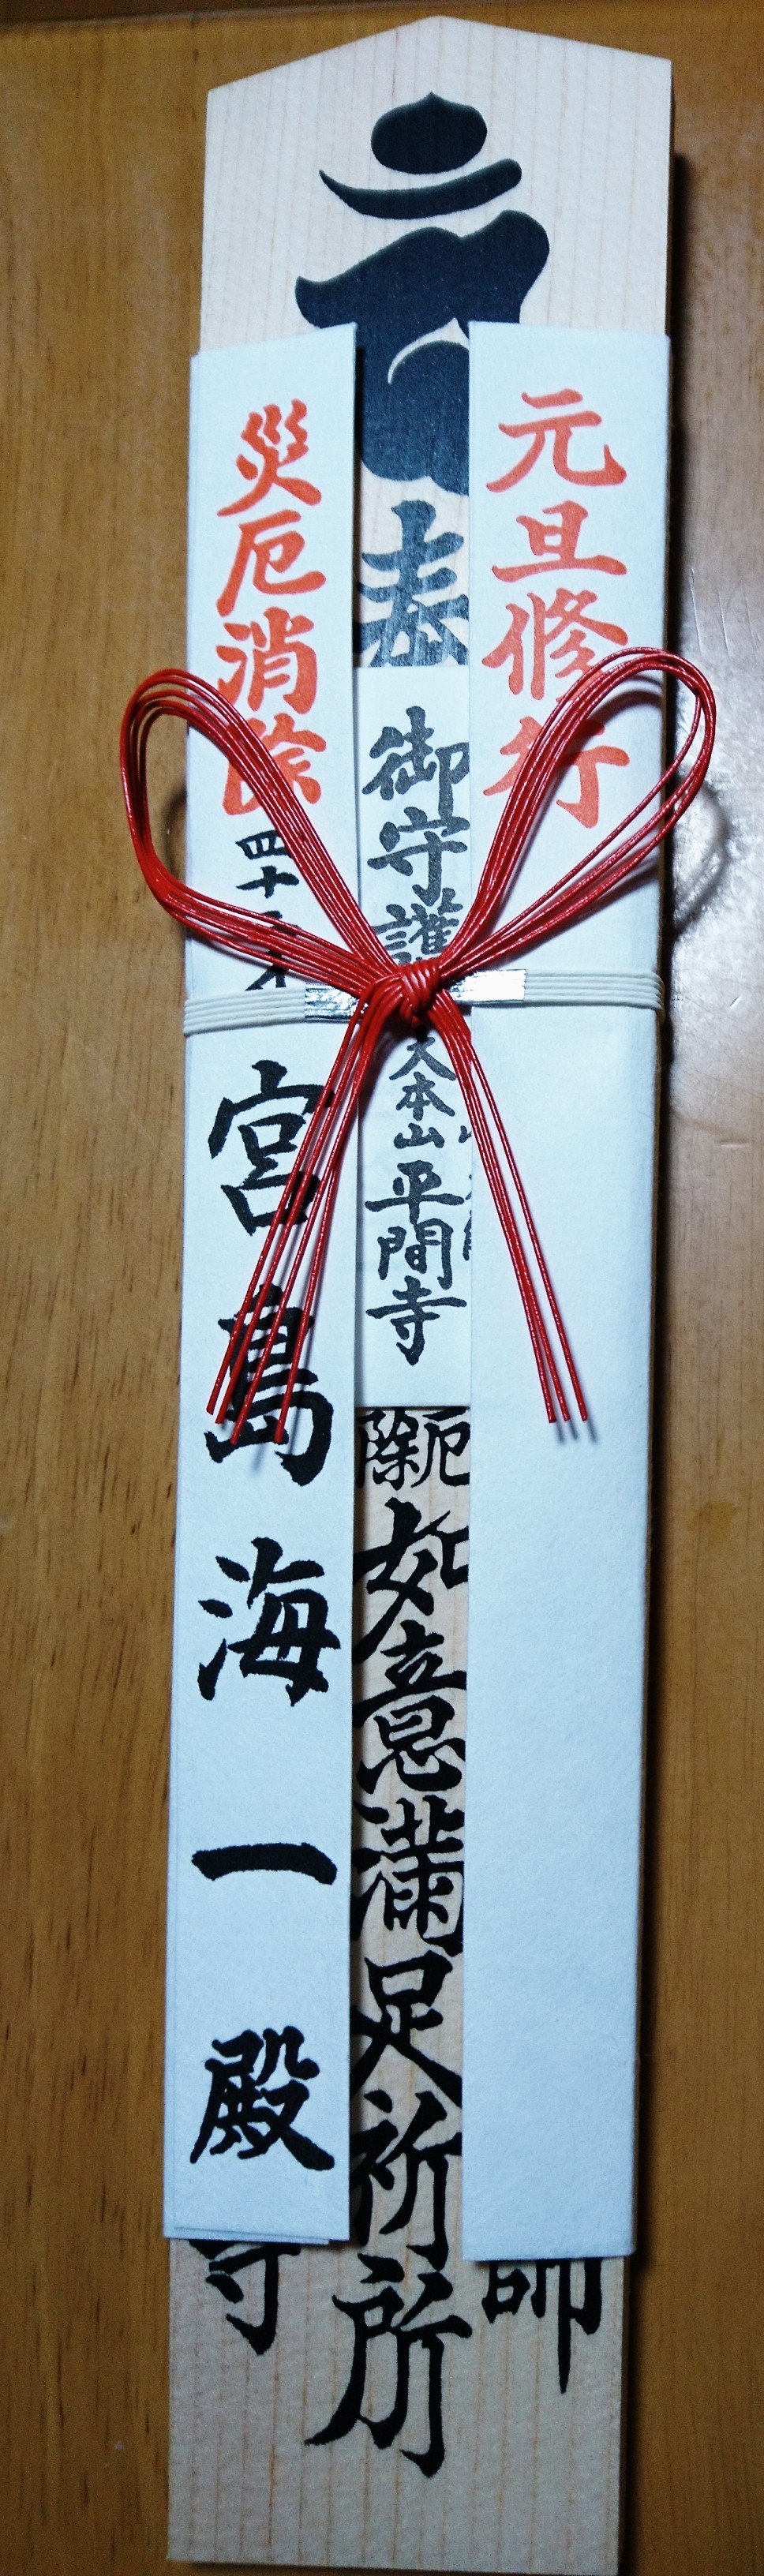 元旦修行
師
御守護
大本山
平間寺
厄除
如意満足祈所
災厄消除
四十
宮島海一殿
寺